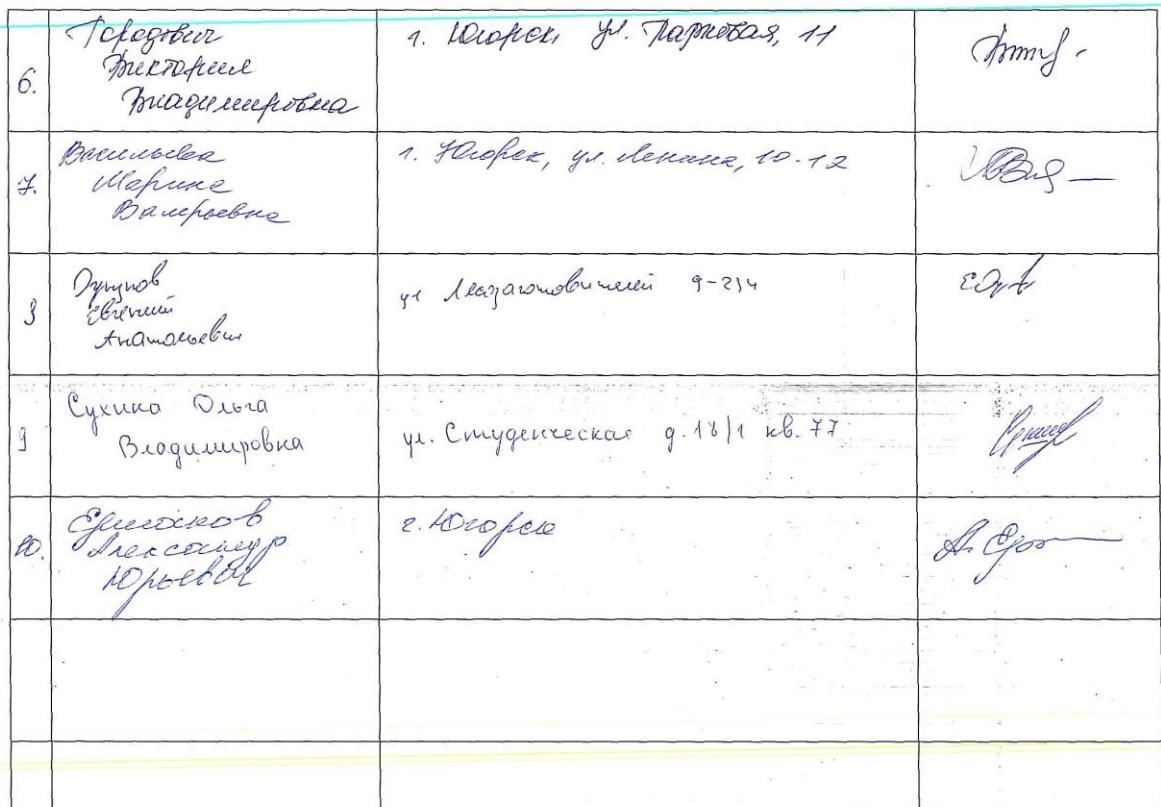 6.
Городович
Виктория
Владимировна
г. Югорск, ул. Парковая, 11
7.
Васильева
Марина
Валерьевна
г. Югорск, ул. Ленина, 10-12
8
Евгений
Анатольевич
ул Лесозаготовителей 9-234
9
Ольга
Владимировна
ул. Студенческая д. 18/1 кв. 77
10.
Александр
Юрьевич
г. Югорск